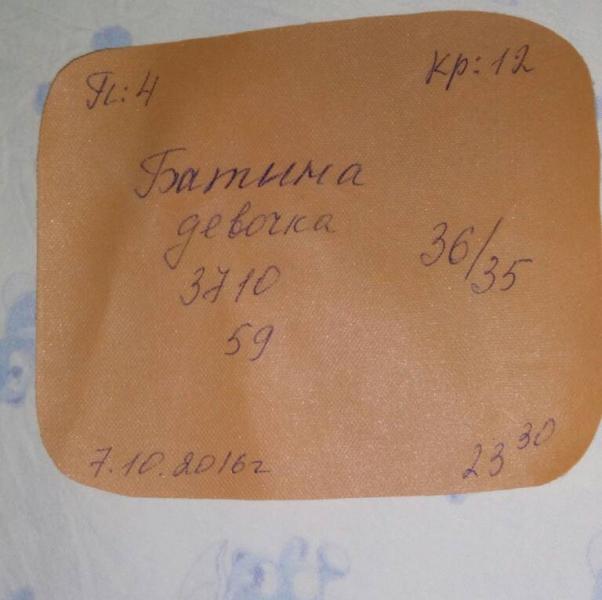 Пл: 4 Кр: 12
Батина
девочка
3710 36/35
59
7.10.2016г 23 30